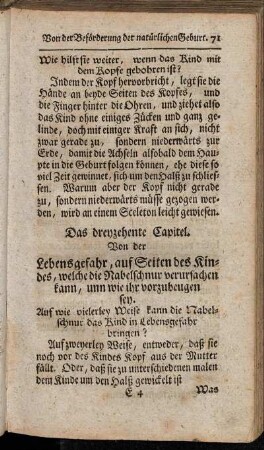 Von der Beförderung der natürlichen Geburt. 71
Wie hilft sie weiter, wenn das Kind mit
dem Kopfe gebohren ist?
Indem der Kopf hervorbricht, legt sie die
Hände an beyde Seiten des Kopfes, und
die Finger hinter die Ohren, und ziehet also
das Kind ohne einiges Zücken und ganz ge-
linde, doch mit einiger Kraft an sich, nicht
zwar gerade zu, sondern niederwärts zur
Erde, damit die Achseln alsobald dem Hau-
pte in die Geburt folgen können, ehe diese so
viel Zeit gewinnet, sich um den Halß zu schlies-
sen. Warum aber der Kopf nicht gerade
zu, sondern niederwärts müsse gezogen wer-
den, wird an einem Sceleton leicht gewiesen.
Das dreyzehente Capitel.
Von der
Lebensgefahr, auf Seiten des Kin-
des, welche die Nabelschnur verursachen
kann, unn wie ihr vorzubeugen
sey.
Auf wie vielerley Weise kann die Nabel-
schnur das Kind in Lebensgefahr
bringen?
Auf zweyerley Weise, entweder, daß sie
noch vor des Kindes Kopf aus der Mutter
fällt. Oder, daß sie zu unterschiedenen malen
dem Kinde um den Halß gewickelt ist
E 4 Was